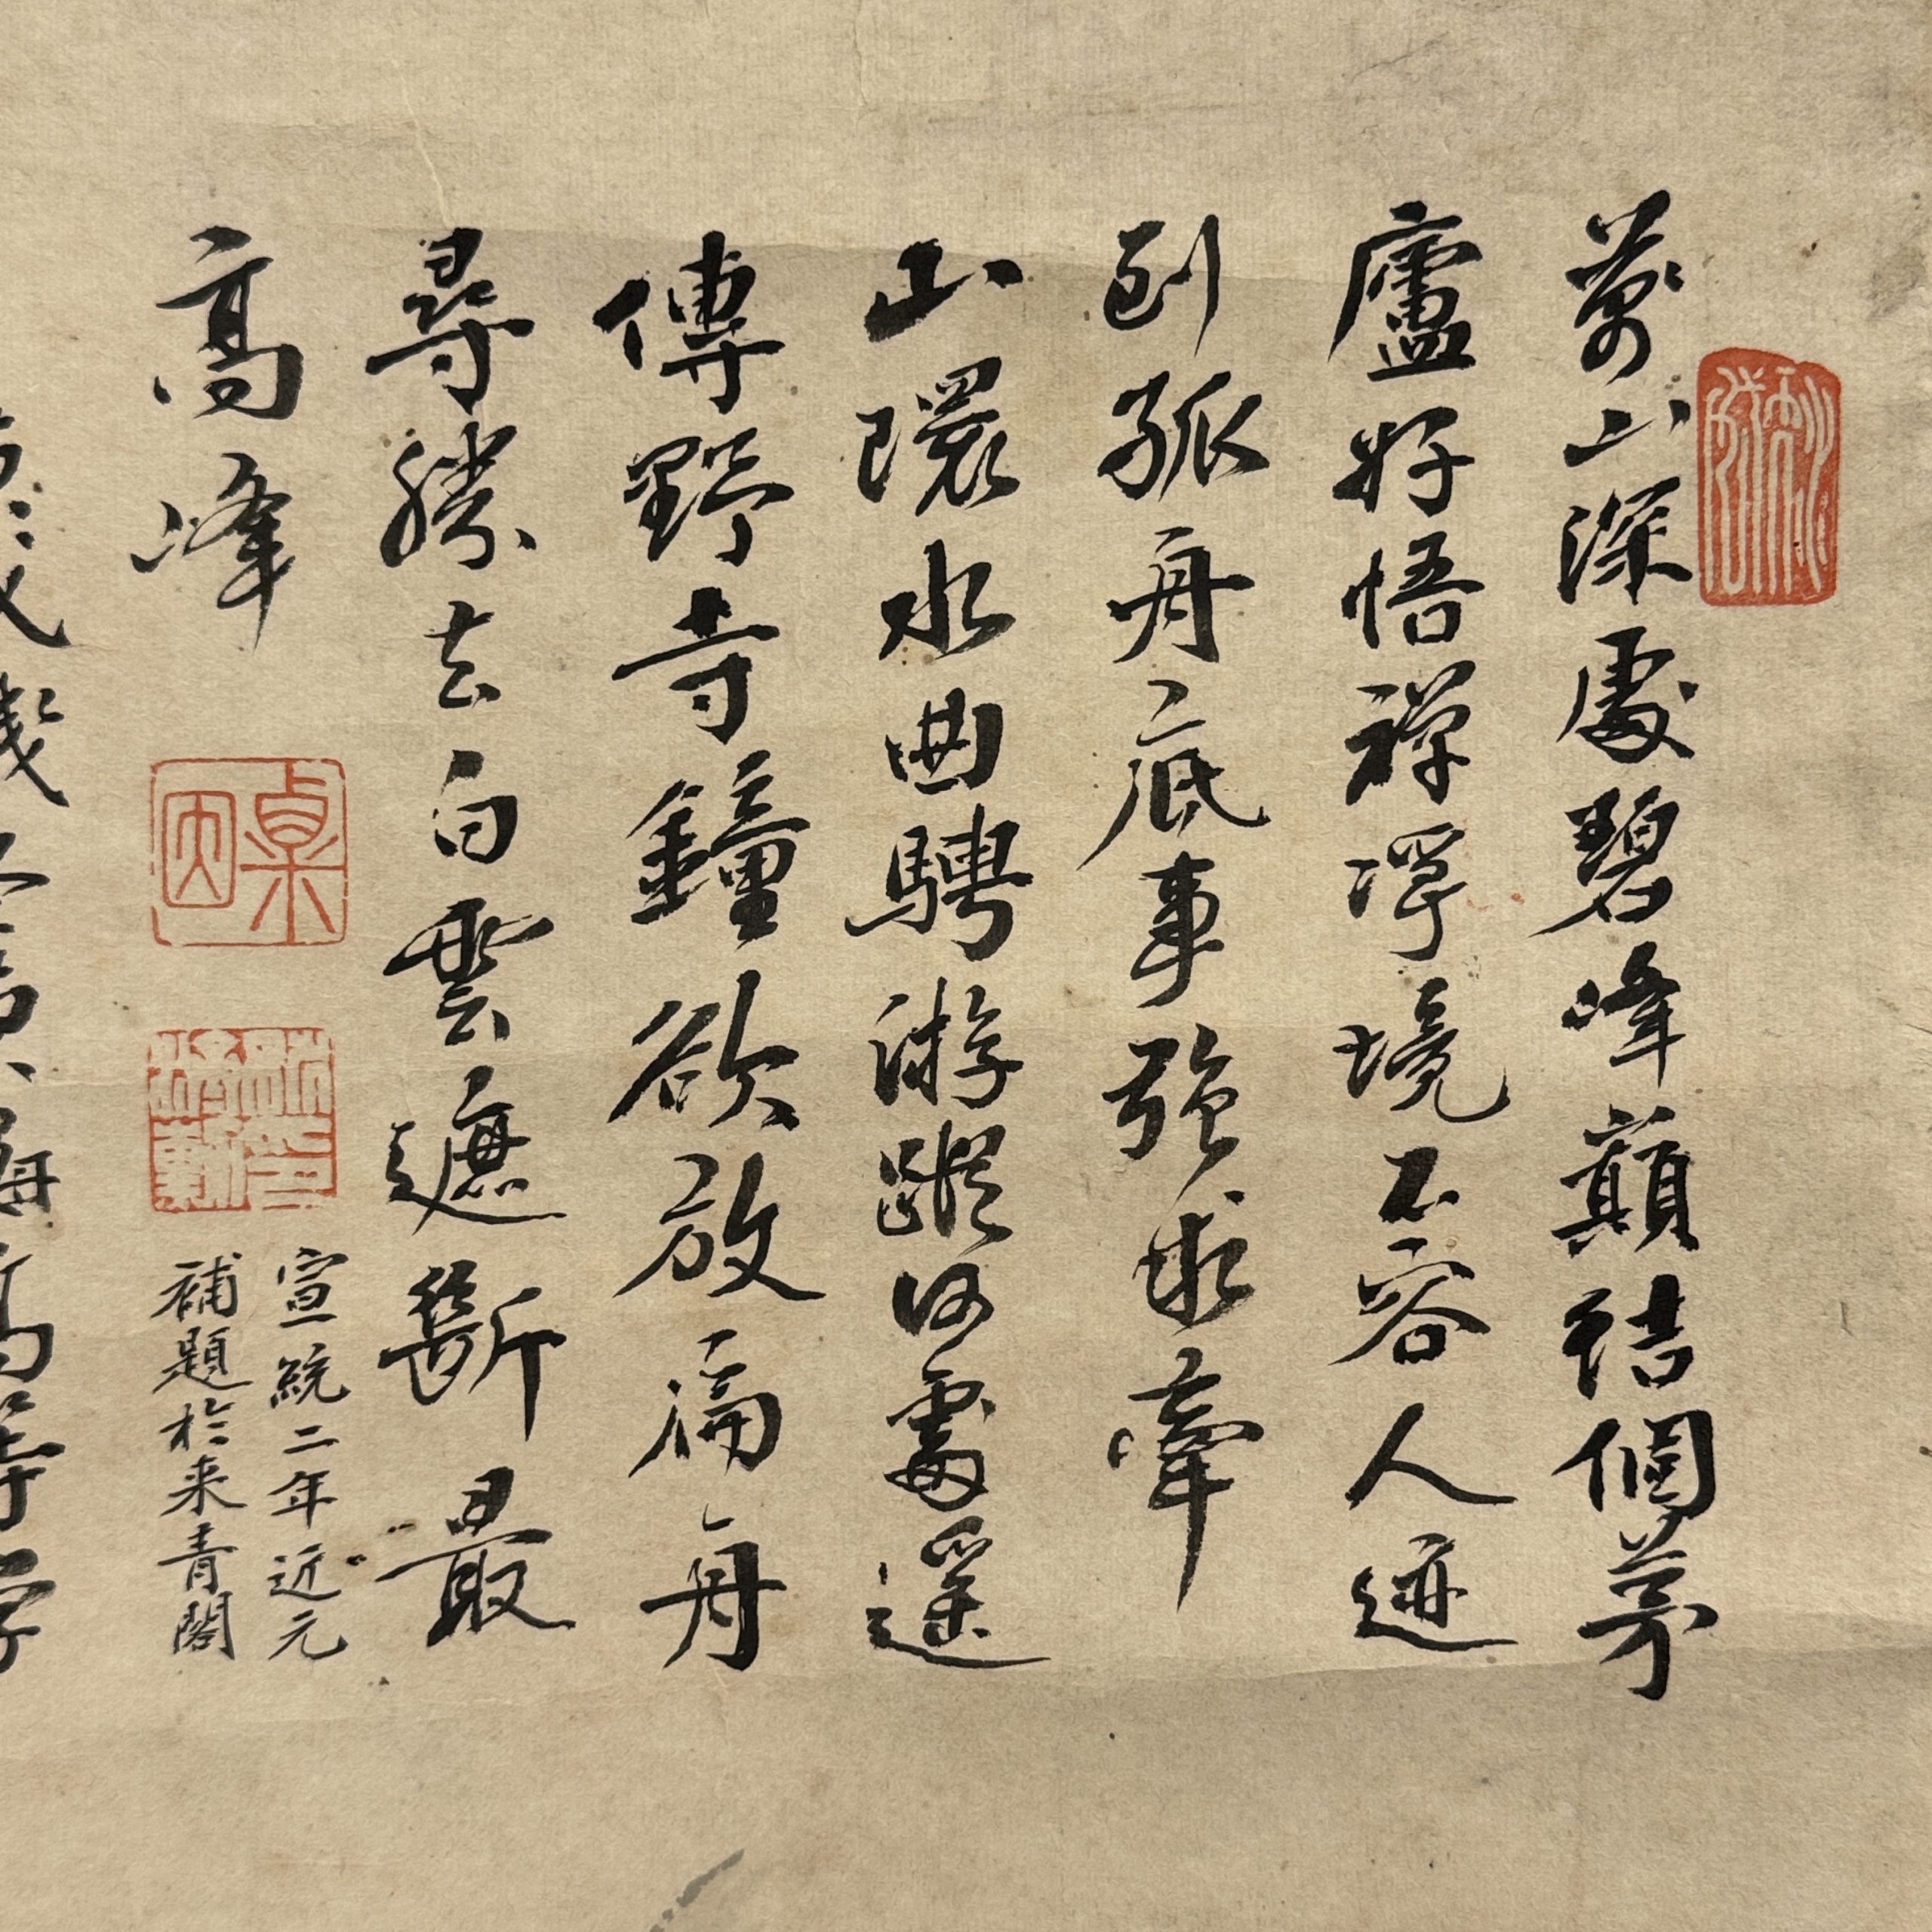 萬山深處碧峰巔結個茅
廬好悟禪淨境不容人迹
到孤舟底事強求牽
山環水曲騁游蹤何處遥
傳野寺鐘欲放扁舟
尋勝去白雲遮斷最
高峰
宣統二年近元
補題於来青閣